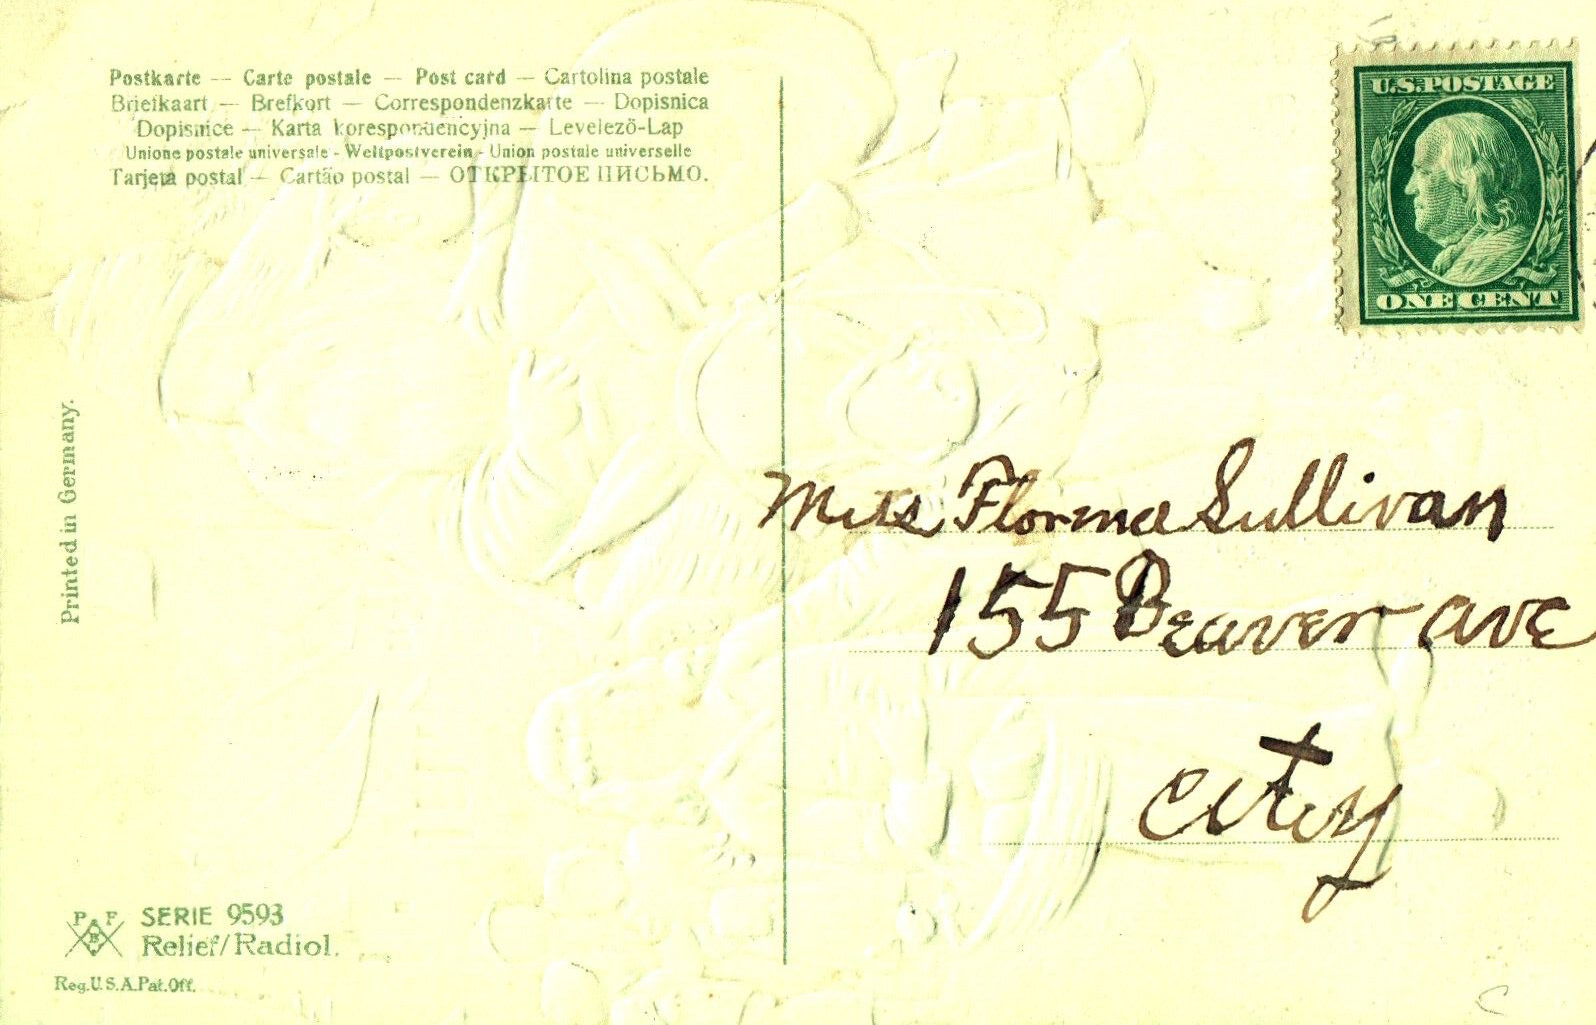 Postkarte — Carte postale — Post card — Cartolina postale
Briefkaart — Brefkort — Correspondenzkarte — Dopisnica
Dopisnice — Karta korespondencyjna — Levelező-Lap
Unione postale universale - Weltpostverein - Union postale universelle
Tarjeta postal — Cartão postal — ОТКРЫТОЕ ПИСЬМО.
U.S. POSTAGE
ONE CENT
Printed in Germany.
Miss Florence Sullivan
155 Beaver ave
City
P F
B
SERIE 9593
Relief/Radiol.
Reg.U.S.A.Pat.Off.